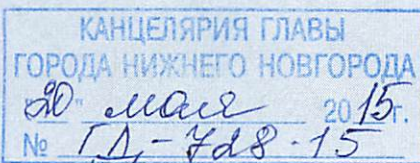 КАНЦЕЛЯРИЯ ГЛАВЫ
ГОРОДА НИЖНЕГО НОВГОРОДА
"20" мая 2015г.
№ ГД-728-15